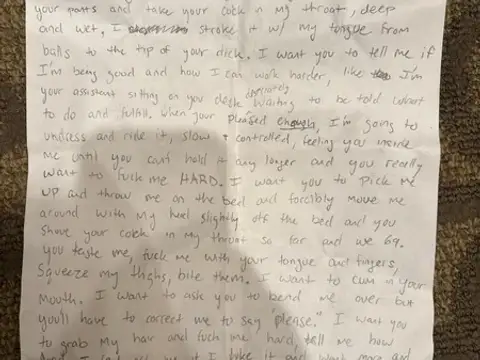 your pants and take your cock in my throat, deep
and wet, I stroke it w/ my tongue from
balls to the tip of your dick. I want you to tell me if
I'm being good and how I can work harder, like I'm
your assistant sitting on you desk waiting to be told what
to do and fulfill. When your pleased enough, I'm going to
undress and ride it, slow & controlled, feeling you inside
me until you can't hold it any longer and you really
want to fuck me HARD. I want you to pick me
up and throw me on the bed and forcibly move me
around with my head slightly off the bed and you
shove your cock in my throat so far and we 69.
you taste me, fuck me with your tongue and fingers,
squeeze my thighs, bite them. I want to cum in your
mouth. I want to ask you to bend me over but
you'll have to correct me to say "please." I want you
to grab my hair and fuck me hard, tell me how
I like it and